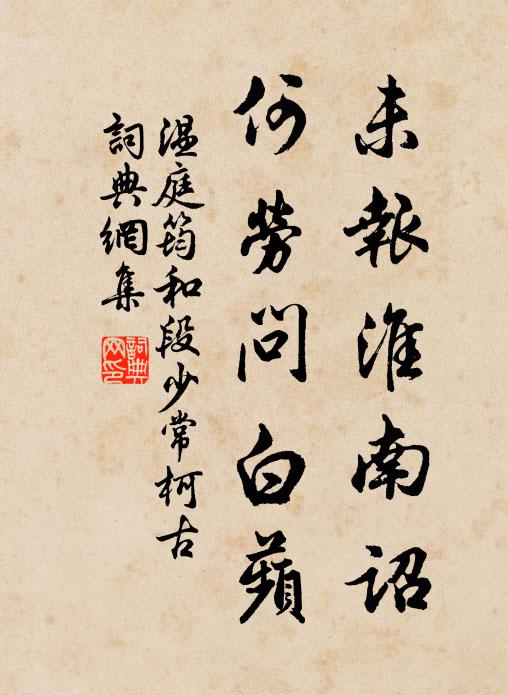 未報淮南詔
何勞問白蘋
温庭筠和段少常柯古
詞典網集
詞典网印